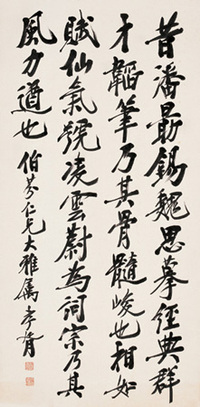 昔潘勖錫魏思摹經典群
才韜筆乃其骨髓峻也相如
賦仙氣號凌雲蔚為詞宗乃其
風力遒也 伯芬仁兄大雅屬 孝胥